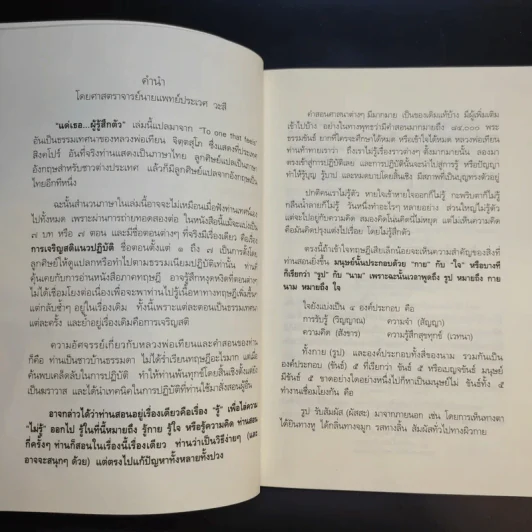 คำนำ
โดยศาสตราจารย์นายแพทย์ประเวศ วะสี
"แด่เธอ...ผู้รู้สึกตัว" เล่มนี้แปลมาจาก "To one that feels"
อันเป็นธรรมเทศนาของหลวงพ่อเทียน จิตตสุโภ ซึ่งแสดงที่ประเทศ
สิงคโปร์ อันที่จริงท่านแสดงเป็นภาษาไทย ลูกศิษย์แปลเป็นภาษา
อังกฤษสำหรับชาวต่างประเทศ แล้วก็มีลูกศิษย์แปลจากอังกฤษเป็น
ไทยอีกทีหนึ่ง
ฉะนั้นสำนวนภาษาในเล่มนี้อาจจะไม่เหมือนเมื่อฟังท่านเทศน์
ไปทั้งหมด เพราะผ่านการถ่ายทอดสองต่อ ในหนังสือนี้แม้จะแบ่งเป็น
๗ บท หรือ ๗ ตอน และมีชื่อตอนต่างๆ ที่จริงมีเรื่องเดียว คือเรื่อง
การเจริญสติแนวปฏิบัติ ชื่อตอนตั้งแต่ ๑ ถึง ๗ เป็นการตั้งโดย
ลูกศิษย์ให้ดูแปลกหรือทำไปตามธรรมเนียมปฏิบัติเท่านั้น ท่านที่
คุ้นเคยกับการอ่านหนังสือภาคทฤษฎี อาจรู้สึกหงุดหงิดที่ตอนต่างๆ
ไม่ได้เชื่อมโยงต่อเนื่องเพื่อจะพาท่านไปรู้เนื้อหาทางทฤษฎีเพิ่มขึ้นๆ
แต่กลับซ้ำๆ อยู่ในเรื่องเดิม ทั้งนี้เพราะแต่ละตอนเป็นธรรมเทศนา
แต่ละครั้ง และย้ำอยู่เรื่องเดิมคือการเจริญสติ
ความอัศจรรย์เกี่ยวกับหลวงพ่อเทียนและคำสอนของท่าน
ก็คือ ท่านเป็นชาวบ้านธรรมดา ไม่ได้ร่ำเรียนทฤษฎีอะไรมาก แต่เมื่อ
ค้นพบเคล็ดลับในการปฏิบัติ ทำให้ท่านพ้นทุกข์โดยสิ้นเชิงตั้งแต่ยัง
เป็นฆราวาส และได้นำเทคนิคในการปฏิบัติที่ท่านใช้มาสั่งสอนผู้อื่น
อาจกล่าวได้ว่าท่านสอนอยู่เรื่องเดียวคือเรื่อง "รู้" เพื่อไล่ความ
"ไม่รู้" ออกไป รู้ในที่นี้หมายถึง รู้กาย รู้ใจ หรือรู้ความคิด ท่านสอน
กี่ครั้งๆ ท่านก็สอนในเรื่องนี้เรื่องเดียว ท่านว่าเป็นวิธีง่ายๆ (และ
อาจจะสนุกๆ ด้วย) แต่ตรงไปแก้ปัญหาทั้งหลายทั้งปวง
คำสอนศาสนาต่างๆ มีมากมาย เป็นของเดิมแท้บ้าง มีผู้เพิ่มเติม
เข้าไปบ้าง อย่างในทางพุทธว่ามีคำสอนมากมายถึง ๘๔,๐๐๐ พระ
ธรรมขันธ์ ยากที่ใครจะศึกษาได้หมด หรือเข้าใจได้หมด หลวงพ่อเทียน
ท่านท้าทายเราว่า ถึงเราไม่รู้เรื่องราวต่างๆ ตั้งมากมายนั้น ลองมา
ตรงเข้าสู่การปฏิบัติเลย และการปฏิบัตินั้นจะนำไปสู่การรู้ หรือปัญญา
ทำให้รู้บุญ รู้บาป และหมดบาปโดยสิ้นเชิง มีสภาพที่เป็นบุญพร้อมตรงอยู่
ปกติคนเราไม่รู้ตัว หายใจเข้าหายใจออกก็ไม่รู้ กะพริบตาก็ไม่รู้
กลืนน้ำลายก็ไม่รู้ วันหนึ่งทำอะไรๆ หลายอย่าง ส่วนใหญ่ไม่รู้ตัว
แต่จะไปอยู่กับความคิด สมองคิดโน่นคิดนี่ไม่หยุด แต่ไม่เห็นความคิด
คือมันคิดปรุงแต่งไปเรื่อย โดยมันไม่รู้สึกตัว
ตรงนี้ถ้าเข้าใจทฤษฎีเสียเล็กน้อยจะเห็นความสำคัญของสิ่งที่
ท่านสอนยิ่งขึ้น มนุษย์นั้นประกอบด้วย "กาย" กับ "ใจ" หรือบางที
ก็เรียกว่า "รูป" กับ "นาม" เพราะฉะนั้นเวลาพูดถึง รูป หมายถึง กาย
นาม หมายถึง ใจ
ใจยังแบ่งเป็น ๔ องค์ประกอบ คือ
การรับรู้ (วิญญาณ) ความจำ (สัญญา)
ความคิด (สังขาร) ความรู้สึกสุขทุกข์ (เวทนา)
ทั้งกาย (รูป) และองค์ประกอบทั้งสี่ของนาม รวมกันเป็น
องค์ประกอบ (ขันธ์) ๕ ที่เรียกว่า ขันธ์ ๕ หรือเบญจขันธ์ มนุษย์
มีขันธ์ ๕ ขาดอย่างใดอย่างหนึ่งไปก็หาเป็นมนุษย์ไม่ ขันธ์ทั้ง ๕
ทำงานเชื่อมโยงกัน คือ
รูป รับสัมผัส (ผัสสะ) มาจากภายนอก เช่น โดยการเห็นทางตา
ได้ยินทางหู ได้กลิ่นทางจมูก รสทางลิ้น สัมผัสทั่วไปทางผิวกาย